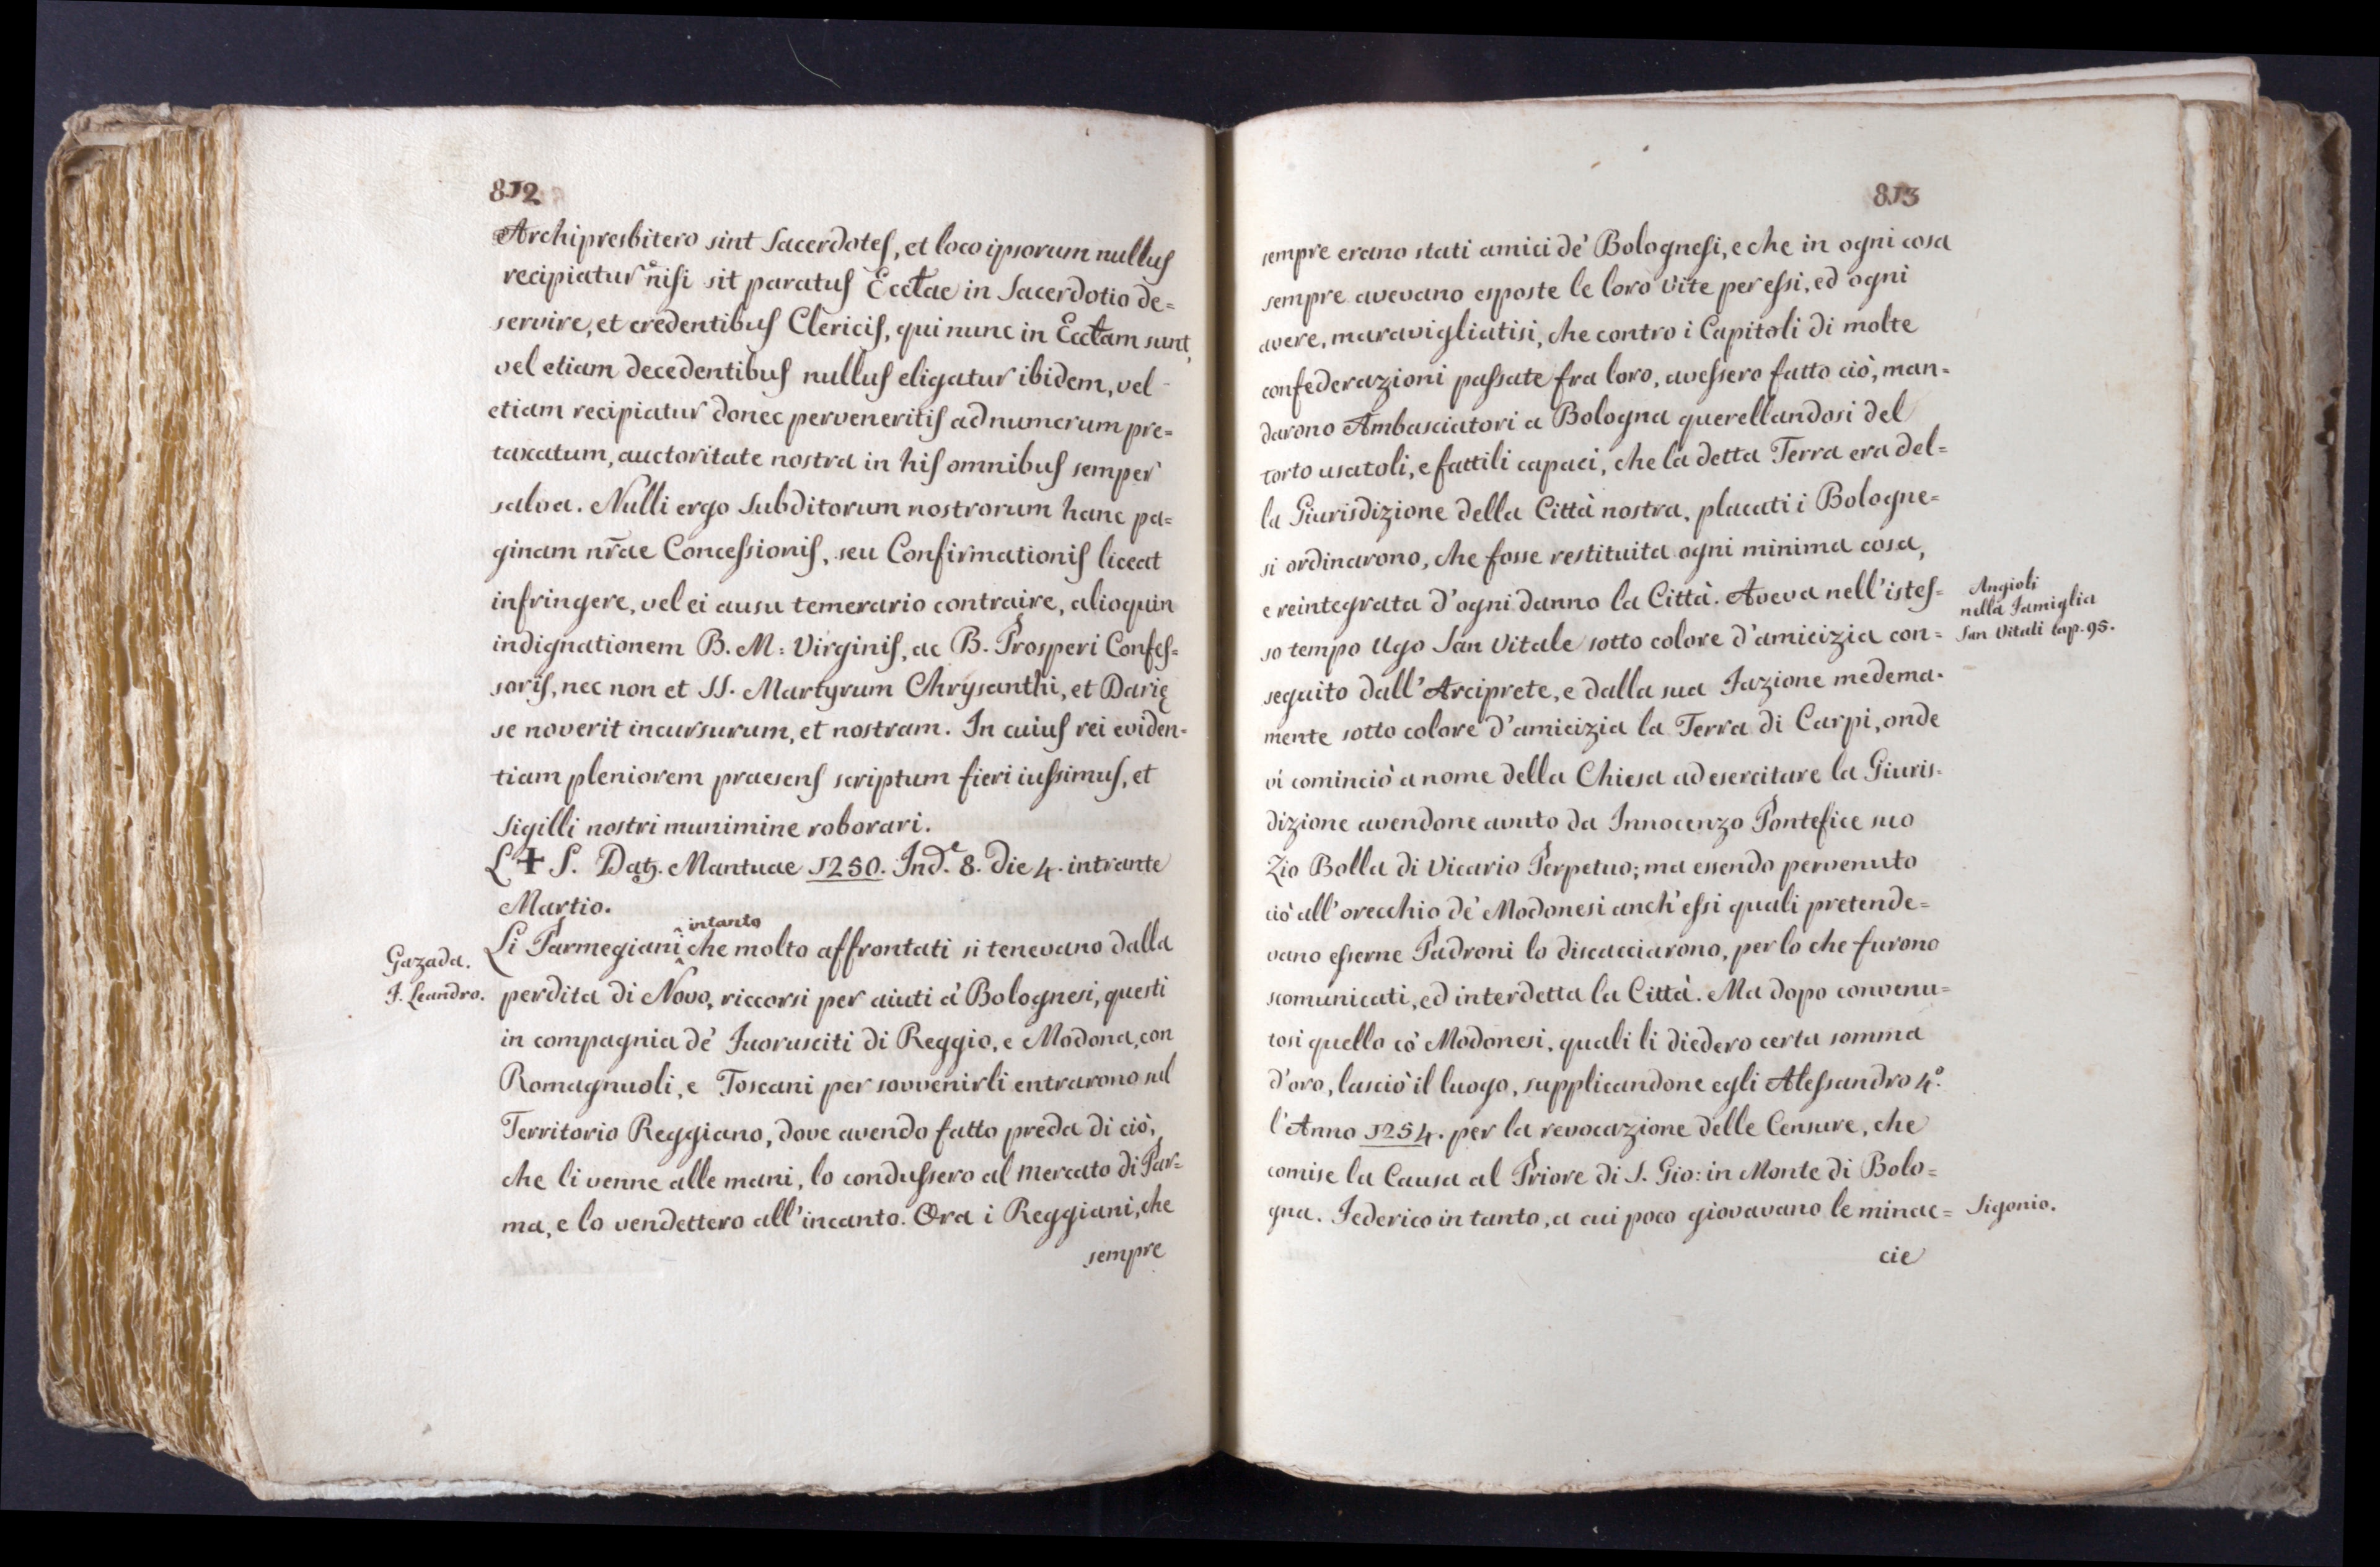 812
Archipresbitero sint Sacerdotes, et loco ipsorum nullus
recipiatur nisi sit paratus Ecctae in Sacerdotio de=
servire, et credentibus Clericis, qui nunc in Ecctam sunt,
vel etiam decedentibus nullus eligatur ibidem, vel
etiam recipiatur donec perveneritis ad numerum pre=
taxatum, auctoritate nostra in his omnibus semper
salva. Nulli ergo Subditorum nostrorum hanc pa=
ginam nr̃ae Concessionis, seu Confirmationis liceat
infringere, vel ei ausu temerario contraire, alioquin
indignationem B. M: Virginis, ac B. Prosperi Confes=
soris, nec non et SS. Martyrum Chrysanthi, et Darię
se noverit incursurum, et nostram. In cuius rei eviden=
tiam pleniorem praesens scriptum fieri iussimus, et
Sigilli nostri munimine roborari.
L ✝ S. Dat. Mantuae 1250. Ind.e 8. die 4. intrante
Martio.
intanto
Li Parmegiani che molto affrontati si tenevano dalla
Gazada.
F. Leandro.
perdita di Novo, riccorsi per aiuti a' Bolognesi, questi
in compagnia de' Fuorusciti di Reggio, e Modona, con
Romagnuoli, e Toscani per sovvenirli entrarono sul
Territorio Reggiano, dove avendo fatto preda di ciò,
che li venne alle mani, lo condussero al mercato di Par=
ma, e lo vendettero all'incanto. Ora i Reggiani, che
sempre
813
sempre erano stati amici de' Bolognesi, e che in ogni cosa
sempre avevano esposte le loro vite per essi, ed ogni
avere, maravigliatisi, che contro i Capitoli di molte
confederazioni passate fra loro, avessero fatto ciò, man=
darono Ambasciatori a Bologna querellandosi del
torto usatoli, e fattili capaci, che la detta Terra era del=
la Giurisdizione della Città nostra, placati i Bologne=
si ordinarono, che fosse restituita ogni minima cosa,
e reintegrata d'ogni danno la Città. Aveva nell'istes=
so tempo Ugo San Vitale sotto colore d'amicizia con=
Angioli
nella Famiglia
San Vitali cap. 95.
seguito dall'Arciprete, e dalla sua Fazione medema=
mente sotto colore d'amicizia la Terra di Carpi, onde
vi cominciò a nome della Chiesa ad esercitare la Giuris=
dizione avendone avuto da Innocenzo Pontefice suo
Zio Bolla di Vicario Perpetuo; ma essendo pervenuto
ciò all'orecchio de' Modonesi anch'essi quali pretende=
vano esserne Padroni lo discacciarono, per lo che furono
scomunicati, ed interdetta la Città. Ma dopo convenu=
tosi quello co' Modonesi, quali li diedero certa somma
d'oro, lasciò il luogo, supplicandone egli Alessandro 4.º
l'Anno 1254. per la revocazione delle Censure, che
comise la Causa al Priore di S. Gio: in Monte di Bolo=
gna. Federico in tanto, a cui poco giovavano le minac=
Sigonio.
cie